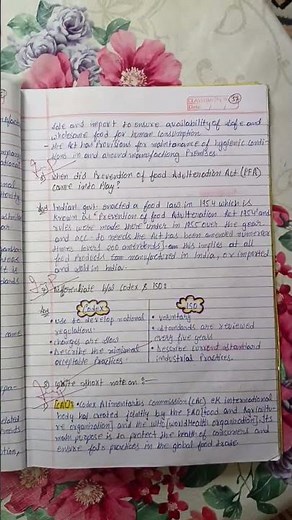 52
Date
sale and import to ensure availability of safe and
wholesome food for human consumption.
the Act has provisions for maintenance of hygienic condi-
tions in and around manufacturing premises.
when did Prevention of food Adulteration Act (PFA)
came into Play?
Indian govt. enacted a food law in 1954 which is
known as "Prevention of food Adulteration Act 1954 and
rules were made there under in 1955 over the year
and acc. to needs the Act has been amended numerous
times (over 200 amendments) this implies at all
food Products manufactured in India, or imported
and sold in India.
Differentiate b/w codex & ISO?
Codex
ISO
• use to develop national
regulations.
• changes are slow
• describe the minimum
acceptable Practices.
• voluntary
• standards are reviewed
every five years
• describe current standard
industrial Practices.
write short note on :-
(CAC) • Codex Alimentarius commission (CAC) international
body was created jointly by the FAO (food and Agricultu-
re organization) and the WHO (world health organization). Its
main purpose is to protect the health of consumers and
ensure fair practices in the global food trade.